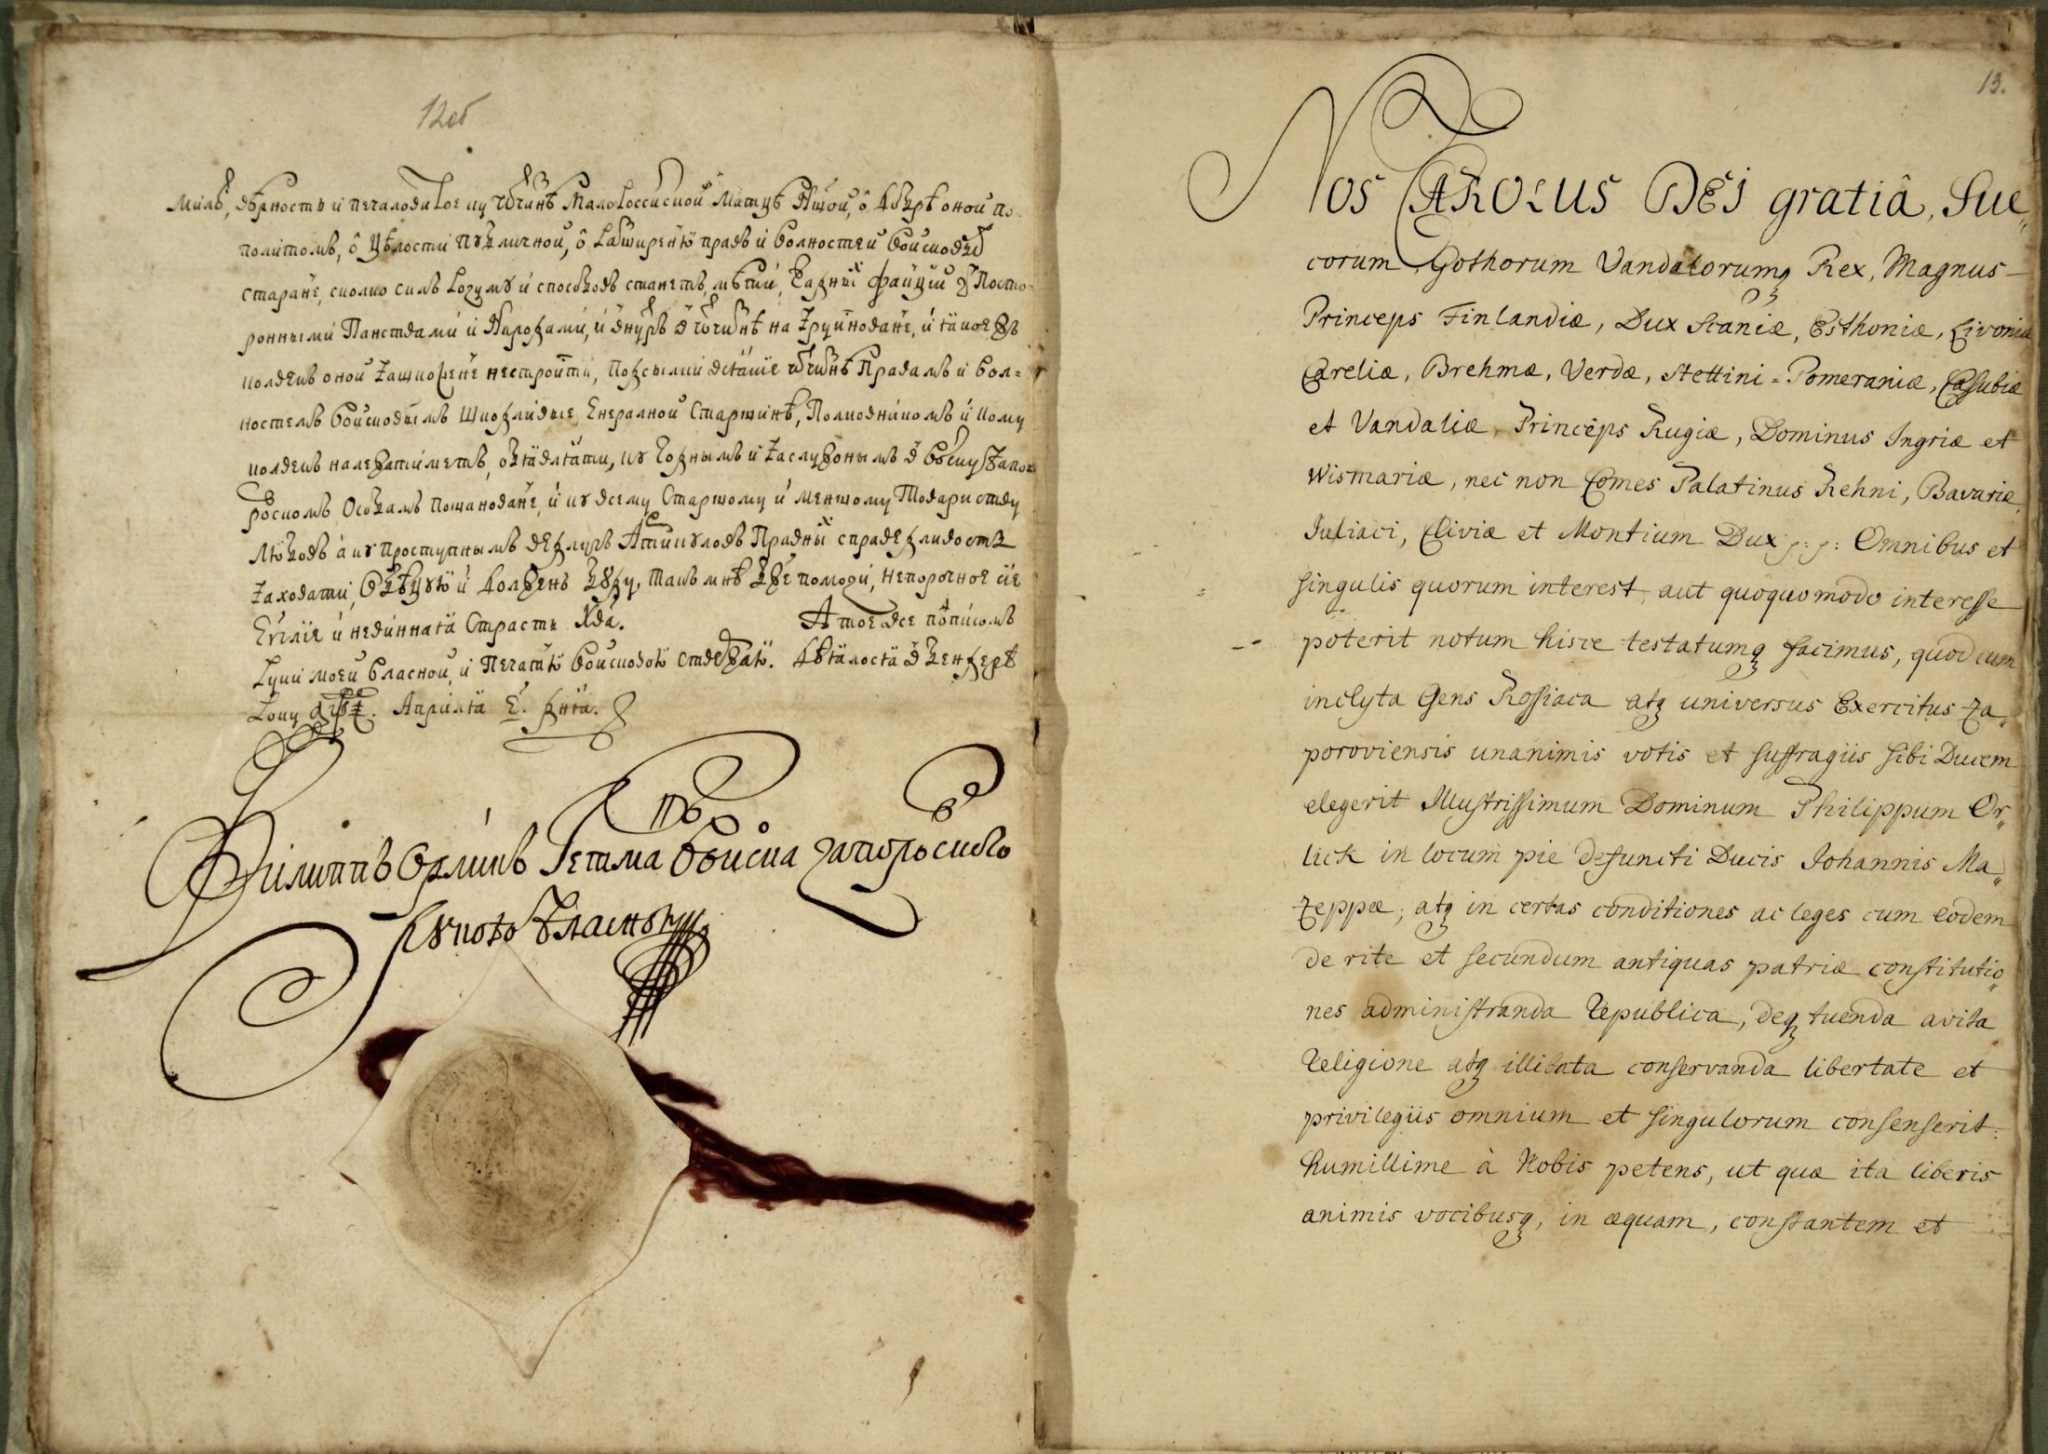 12об
милъ, вѣрность и печаловитое ку Отчизнѣ Малороссійской Матцѣ Нашой, о добрѣ оной по
политомъ, о цѣлости публичной, о разширеню правъ и волностей войсковыхъ
старане, сколко силъ розуму и способовъ станетъ, мѣти, жадныхъ факцій з Посто-
ронными Панствами и Народами, и внутръ в Отчизнѣ на зруйноване, и якое жъ
колвекъ оной зашкожене не строити,
ностемъ войсковымъ шкодливые, Енералной Старшинѣ, Полковникомъ и кому
колвекъ належатиметъ, обявляти, ку годнымъ и заслужонымъ в Войску Запо-
рожскомъ Особамъ пошановане, и ку всему Старшому и меншому Товариству
любовь, а ку проступнымъ ведлугъ Артикуловъ Правныхъ справедливость
заховати, обѣцую и долженъ буду, такъ мнѣ Боже помози, непорочное сие
Еѵгліе и невинная Страсть Хва. А тое все подписомъ
руки моей власной, и печатю войсковою ствержаю. Дѣялося в Бендерѣ
Року ҂аψі. Априля е҃. дня.
Филиппъ Орликъ Гетманъ Войска запорожского
рукою власною
13.
Nos CAROLUS DEI gratiâ, Sue„
corum Gothorum Vandalorumq Rex, Magnus
Princeps Finlandiæ, Dux Scaniæ, Esthoniæ, Livoniæ
Careliæ, Brehmæ, Verdæ, Stettini = Pomeraniæ, Casubiæ
et Vandaliæ, Princeps Rugiæ, Dominus Ingriæ et
Wismariæ, nec non Comes Palatinus Rehni, Bavariæ,
Juliaci, Cliviæ et Montium Dux p: p: Omnibus et
singulis quorum interest, aut quoquo modo interesse
poterit notum hisce testatumq facimus, quod cum
inclyta Gens Rossiaca atq universus Exercitus Za„
poroviensis unanimis votis et suffragiis sibi Ducem
elegerit Illustrissimum Dominum Philippum Or„
lick in locum pie defuncti Ducis Johannis Ma„
zeppæ; atq in certas conditiones ac leges cum eodem
de rite et secundum antiquas patriæ constitutio„
nes administranda Republica, deq tuenda avita
Religione atq illibata conservanda libertate et
privilegiis omnium et singulorum consenserit:
humillime à Nobis petens, ut quæ ita liberis
animis vocibusq, in æquam, constantem et